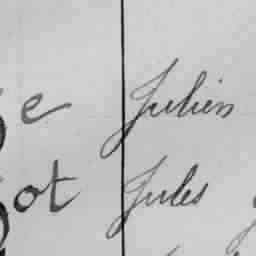 e Julien
ot Jules